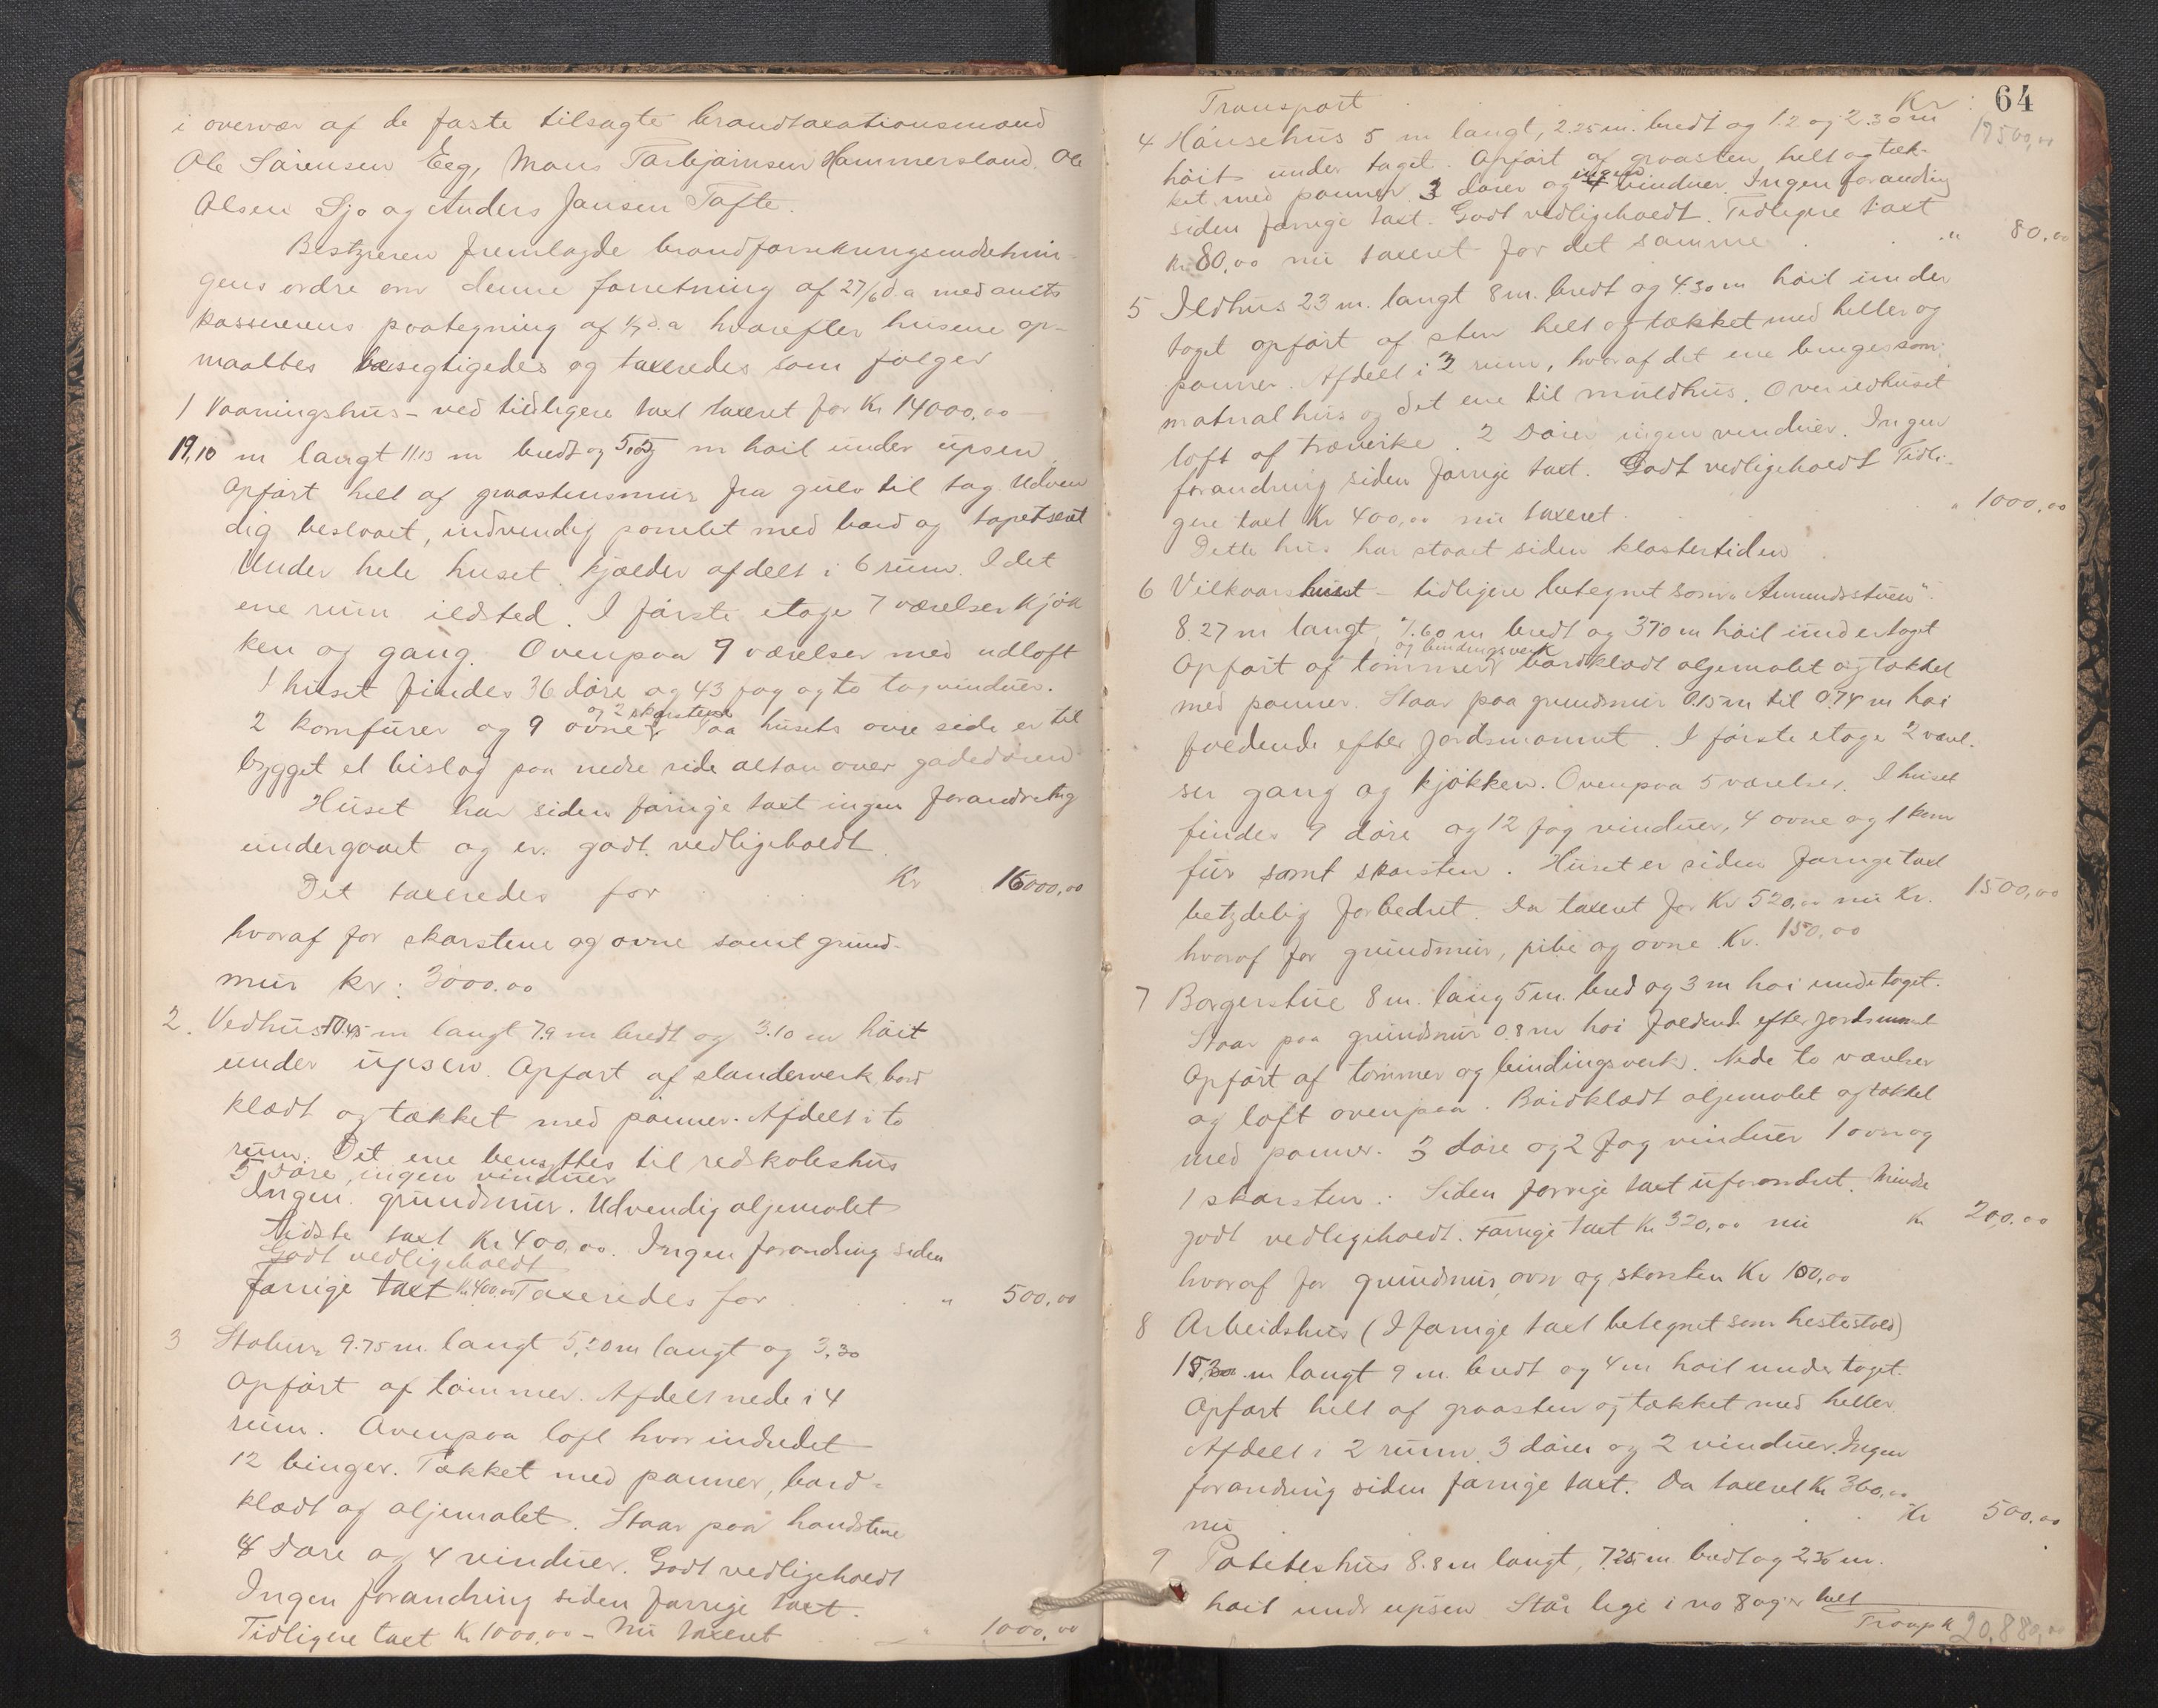 i overvær af de faste tilsagte brandtaxationsmænd
Ole Sørensen Eeg, Mons Torbjørnsen Hammersland, Ole
Olsen Sjo og Anders Jansen Tofte.
Bestyreren fremlagde brandforsikringsindretnin-
gens ordre om denne forretning af 27/6 d.a med amts
kassererens paategning af 1/7 d.a hvorefter husene op-
maaltes besegtigedes og taxeredes som følger
1 Vaaningshus - ved tidligere taxt taxeret for Kr 14000,00
19,10 m langt 11.13 m bredt og m høit under upsen
Opført helt af graastensmur fra gulv til tag Udven
dig beslaaet, indvendig panelet med bord og tapetseret
Under hele huset kjælder afdelt i 6 rum. I det
ene rum ildsted. I første etage 7 værelser kjøk
ken og gang. Ovenpaa 9 værelser med udloft
I huset findes 36 døre og 43 fag og to tagvinduer.
og 2 skorstene
2 komfurer og 9 ovne. Paa husets øvre side er til
bygget et bislag paa nedre side altan over gadedøren
Huset har siden forrige taxt ingen forandring
undergaaet og er godt vedligeholdt
Det taxeredes for Kr 16000,00
hvoraf for skorstene og ovne samt grund-
mur kr: 3000.00
2. Vedhus 10.45 m langt 7.9 m bredt og 3.10 m høit
under upsen. Opført af standerverk, bord
klædt og tækket med panner. Afdelt i to
rum. Det ene benyttes til redskabshus
5 døre, ingen vinduer
Ingen grundmur. Udvendig oljemalet
Sidste taxt Kr 400,00. Ingen forandring siden
Godt vedligeholdt
forrige taxt Kr 400,00 Taxeredes for " 500,00
3 Stabur 9.75 m. langt 5,20 m langt og 3,30
Opført af tømmer. Afdelt nede i 4
rum. Ovenpaa loft hvor indredet
12 binger. Tækket med panner, bord-
klædt og oljemalet. Staar paa handstene
8 døre og 4 vinduer. Godt vedligeholdt
Ingen forandring siden forrige taxt.
Tidligere taxt Kr 1000,00 - Nu taxeret " 1000,00
64
Transport Kr: 17500,00
4 Hønsehus 5 m langt, 2.25 m. bredt og 1.2 og 2.30 m
høit under taget. Opført af graasten helt og tæk-
ingen
ket med panner 3 dører og 4 vinduer. Ingen forandring
siden forrige taxt. Godt vedligeholdt. Tidligere taxt
Kr 80,00 nu taxeret for det samme " 80,00
5 Ildhus 23 m. langt 8 m. bredt og 4.30 m høit under
taget opført af sten helt og tækket med heller og
panner. Afdelt i 3 rum, hvoraf det ene bruges som
matrialhus og det ene til muldhus. Over ildhuset
loft af træverke. 2 Døre ingen vinduer. Ingen
forandring siden forrige taxt. Godt vedligeholdt Tidli-
gere taxt Kr 400,00 nu taxeret " 1000,00
Dette hus har staaet siden klostertiden
6 Vilkaarshuset - tidligere betegnet som "Amundsstuen".
8.27 m langt, 7.60 m bredt og 3.70 m høit under taget
og bindingsverk
Opført af tømmer bordklædt oljemalet og tækket
med panner. Staar paa grundmur 0.15 m til 0.74 m høi
faldende efter jordsmonnet. I første etage 2 værel-
ser gang og kjøkken. Ovenpaa 5 værelser. I huset
findes 9 døre og 12 fag vinduer, 4 ovne og 1 kom
fur samt skorsten. Huset er siden forrige taxt
betydelig forbedret. Da taxeret for Kr 520,00 nu Kr. 1500,00
hvoraf for grundmur, pibe og ovne Kr. 150,00
7 Borgerstue 8 m. lang 5 m. bred og 3 m høi under taget.
Staar paa grundmur 0.8 m høi faldende efter jordsmonnet
Opført af tømmer og bindingsverk. Nede to værelser
og loft ovenpaa. Bordklædt oljemalet og tækket
med panner. 3 døre og 2 fag vinduer 1 ovn og
1 skorsten. Siden forrige taxt uforandret. Mindre
godt vedligeholdt. Forrige taxt Kr 320,00 nu Kr 200.00
hvoraf for grundmur, ovn og skorsten Kr 100,00
8 Arbeidshus (I forrige taxt betegnet som hestestald)
m langt 9 m. bredt og 4 m høit under taget.
Opført helt af graasten og tækket med heller
Afdelt i 2 rum 3 dører og 2 vinduer. Ingen
forandring siden forrige taxt. Da taxeret Kr 360,00
nu Kr 500.00
9 Poteteshus 8.8 m langt, 7.25 m bredt og 2.30 m.
høit under upsen Står lige i no 8 og er helt
Transp Kr 20.880,00